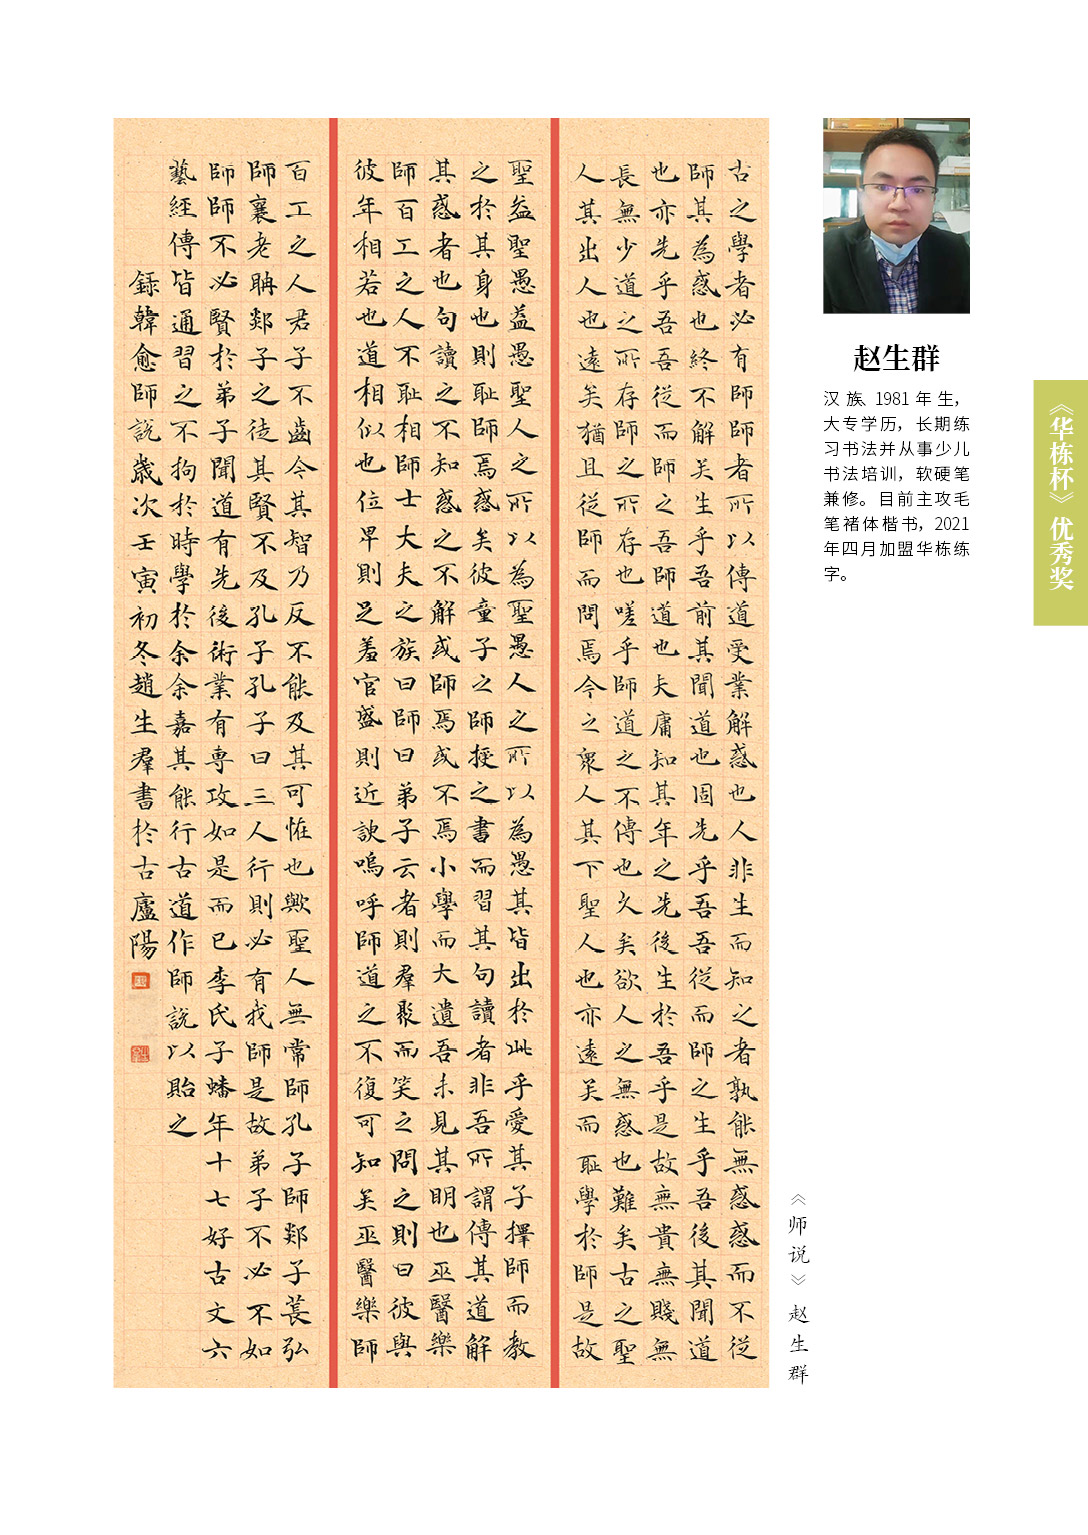 古之學者必有師師者所以傳道受業解惑也人非生而知之者孰能無惑惑而不從
師其為惑也終不解矣生乎吾前其聞道也固先乎吾吾從而師之生乎吾後其聞道
也亦先乎吾吾從而師之吾師道也夫庸知其年之先後生於吾乎是故無貴無賤無
長無少道之所存師之所存也嗟乎師道之不傳也久矣欲人之無惑也難矣古之聖
人其出人也遠矣猶且從師而問焉今之衆人其下聖人也亦遠矣而耻學於師是故
聖益聖愚益愚聖人之所以為聖愚人之所以為愚其皆出於此乎愛其子擇師而教
之於其身也則耻師焉惑矣彼童子之師授之書而習其句讀者非吾所謂傳其道解
其惑者也句讀之不知惑之不解或師焉或不焉小學而大遺吾未見其明也巫醫樂
師百工之人不耻相師士大夫之族曰師曰弟子云者則羣聚而笑之問之則曰彼與
彼年相若也道相似也位卑則足羞官盛則近諛嗚呼師道之不復可知矣巫醫樂師
百工之人君子不齒今其智乃反不能及其可恠也歟聖人無常師孔子師郯子萇弘
師襄老聃郯子之徒其賢不及孔子孔子曰三人行則必有我師是故弟子不必不如
師師不必賢於弟子聞道有先後術業有専攻如是而已李氏子蟠年十七好古文六
藝經傳皆通習之不拘於時學於余余嘉其能行古道作師說以貽之
錄韓愈師說歲次壬寅初冬趙生羣書於古廬陽
《师说》赵生群
赵生群
汉族、1981年生，
大专学历，长期练
习书法并从事少儿
书法培训，软硬笔
兼修。目前主攻毛
笔褚体楷书，2021
年四月加盟华栋练
字。
《华栋杯》优秀奖